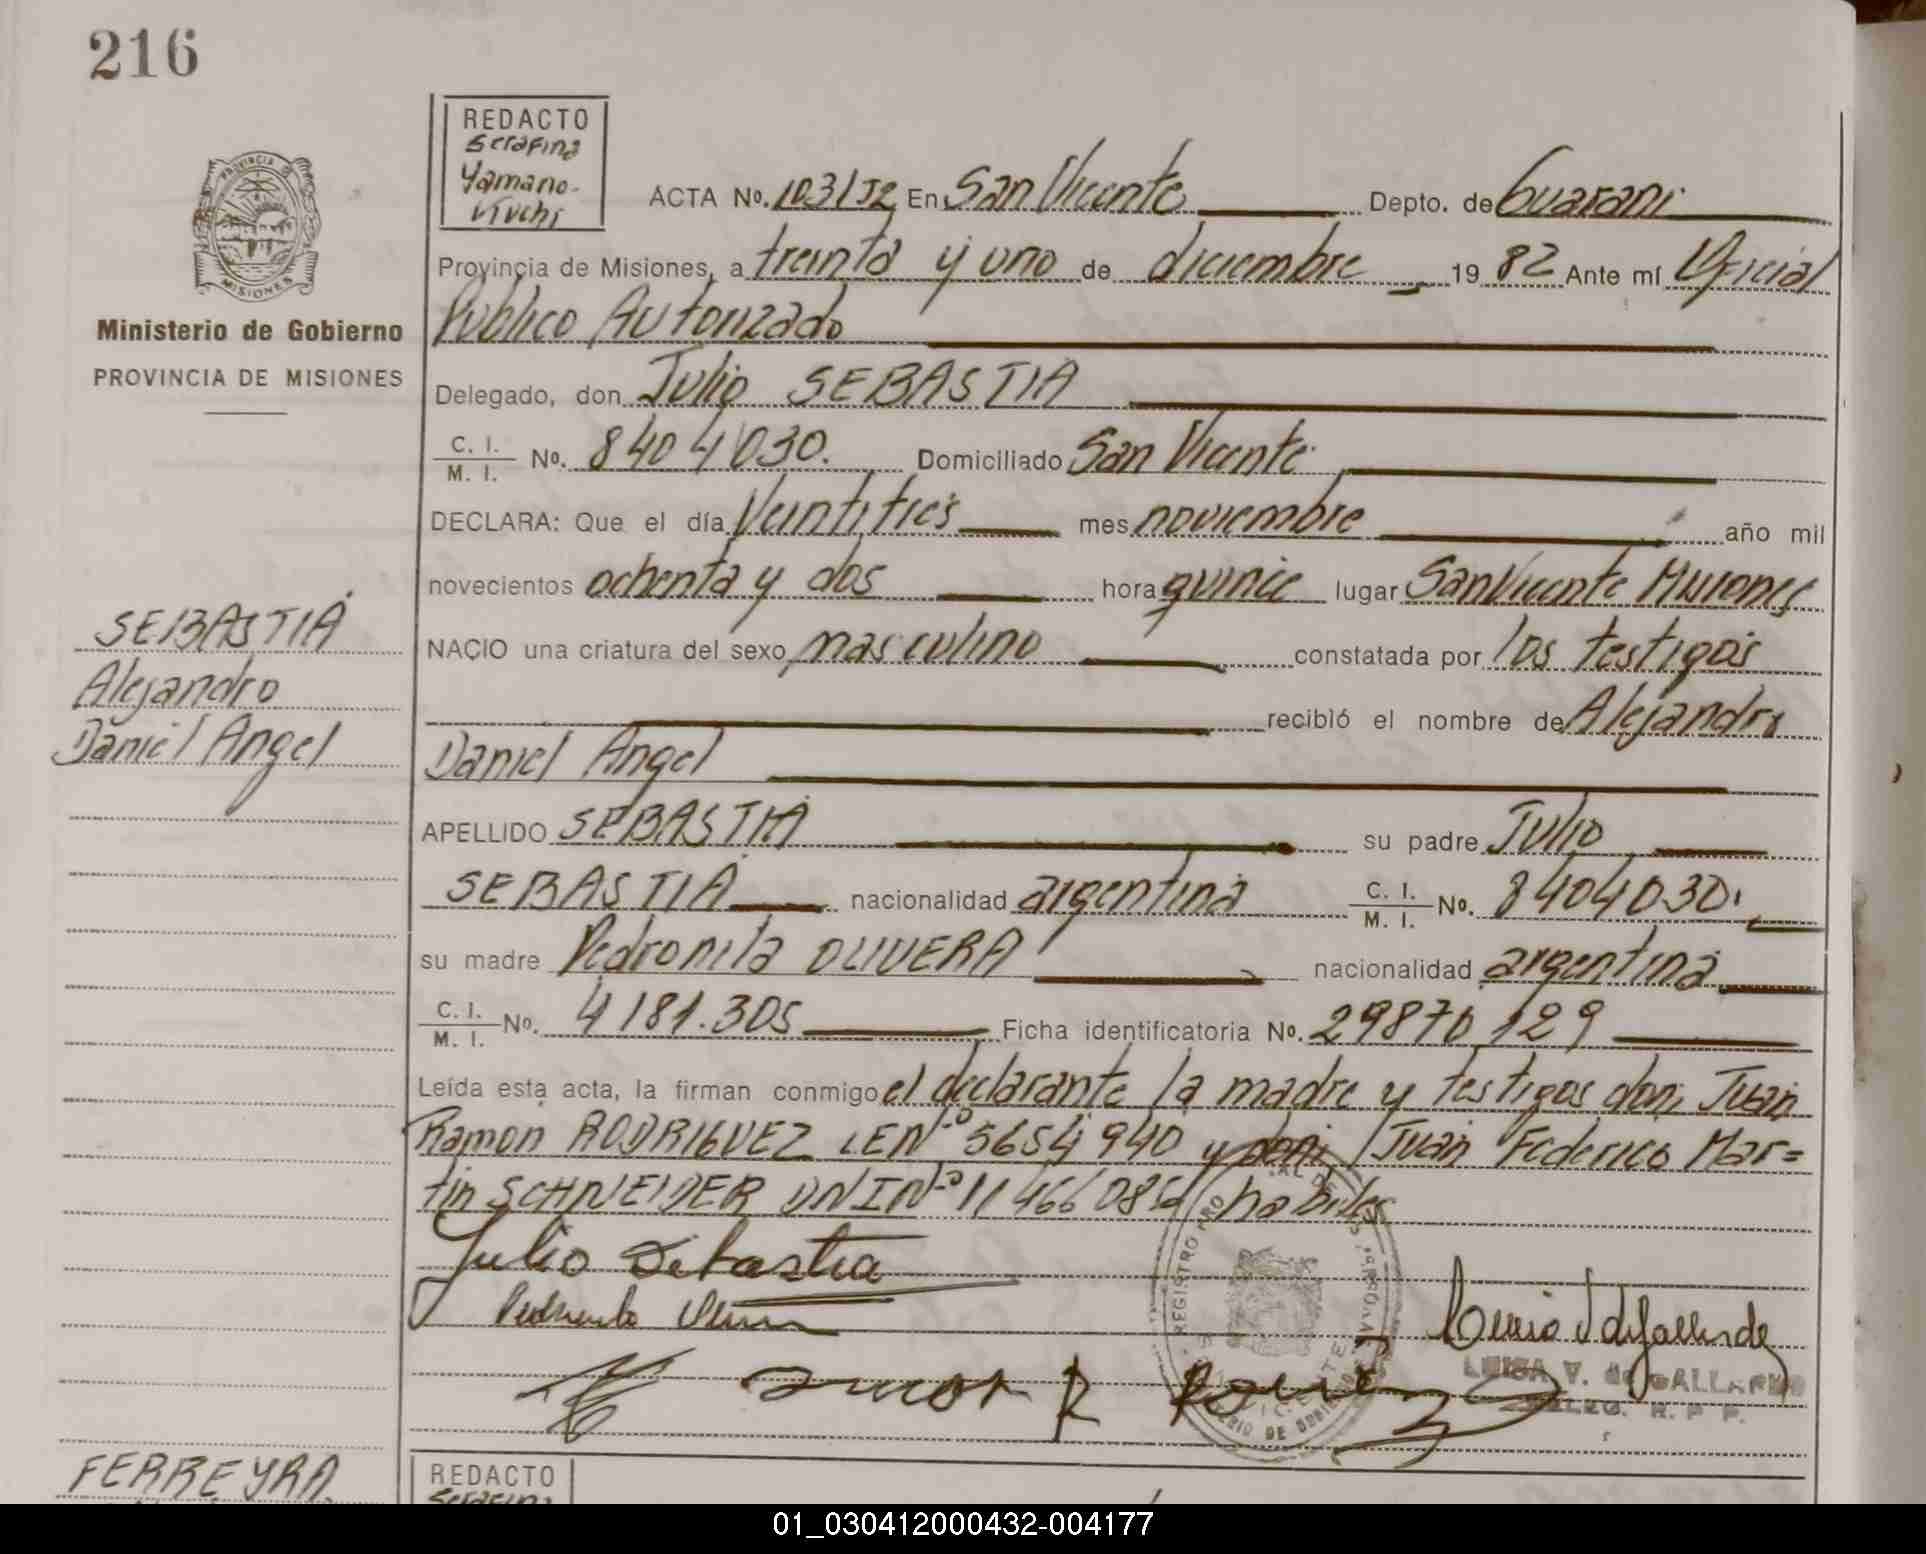 216
REDACTO
Serafina
Yamano-
viuchi
PROVINCIA DE
MISIONES
Ministerio de Gobierno
PROVINCIA DE MISIONES
ACTA No. 1031/J2 En San Vicente Depto. de Guarani
Provincia de Misiones, a treinta y uno de diciembre 19 82 Ante mí Oficial
Publico Autorizado
Delegado, don Julio SEBASTIA
C. I. / M. I. No. 8404030. Domiciliado San Vicente
DECLARA: Que el día Veintitres mes noviembre año mil
novecientos ochenta y dos hora quince lugar San Vicente Misiones
NACIO una criatura del sexo masculino constatada por los testigos
recibió el nombre de Alejandro
Daniel Angel
APELLIDO SEBASTIA su padre Julio
SEBASTIA nacionalidad argentina C. I. / M. I. No. 8404030.
su madre Pedronila OLIVERA nacionalidad argentina
C. I. / M. I. No. 4181.305 Ficha identificatoria No. 29870129
Leída esta acta, la firman conmigo el declarante la madre y testigos don: Juan
Ramon RODRIGUEZ LE Nº 5654940 y don: Juan Federico Mar=
tin SCHNEIDER DNI Nº 11466086 habiles
SEBASTIA
Alejandro
Daniel Angel
Julio Sebastia
REGISTRO
LUISA V. de GALLARDO
DELEG. R. P. P.
FERREYRA
REDACTO
Serafina
01_030412000432-004177